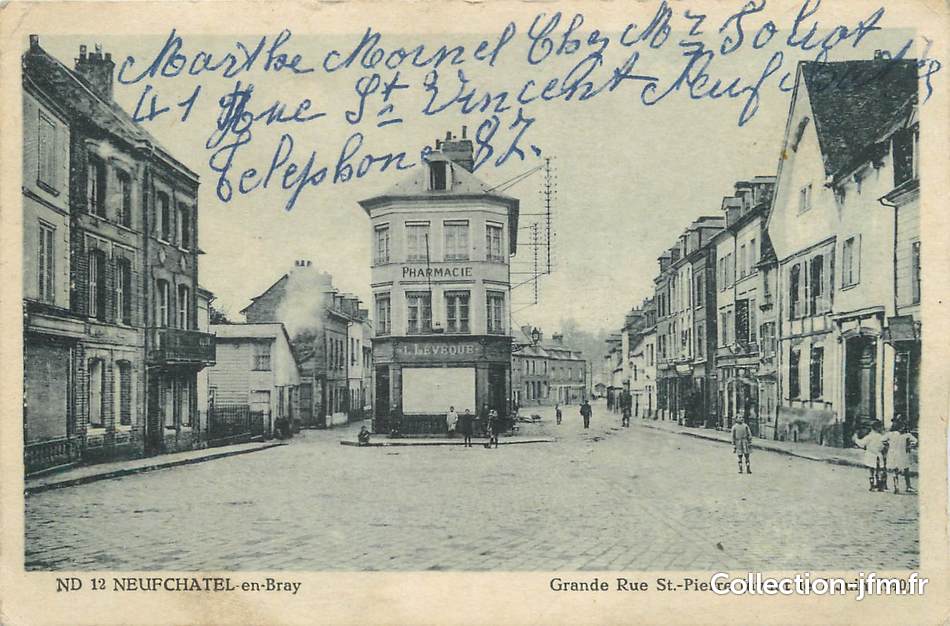 Marthe Mornel Chez Mr Poliot
41 Rue St Vincent Neufchatel
Telephone 87.
PHARMACIE
L. LEVEQUE
ND 12 NEUFCHATEL-en-Bray
Grande Rue St.-Pierre
Collection-jfm.fr